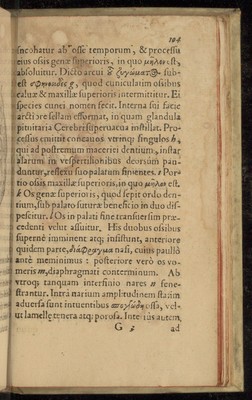 194
incohatur ab osse temporum, & processu
eius ossis genæ superioris, in quo μηλον est,
absoluitur. Dicto arcui ὃ ζυγώματ subest
σφηνοειδὲς g, quod cuniculatim ossibus
caluæ & maxillæ superioris intermittitur. Ei
species cunei nomen fecit. Interna sui facie
arcti ore sellam efformat, in quam glandula
pituitaria Cerebri superuacua instillat. Processus
emittit concauos vtrinque singulos h,
qui ad postremum maceri dentium, instar
alarum in vespertilionibus deorsum panduntur,
reflexi suo palatum finientes. i Portio
ossis maxillæ superioris, in quo μηλον est.
k Os genæ superioris, quod sepit ordo dentium,
sub palato suturæ beneficio in duo dispescitur.
l Os in palati fine transuersim præcedenti
velut assuitur. His duobus ossibus
supernè imminent atque; insistunt, anteriore
quidem parte, διάφραγμα nasi, cuius paullò
antè meminimus: posteriore verò os vomeris
m, diaphragmati conterminum. Ab
vtroque tanquam interfinio nares n fenestrantur.
Intrà narium amplitudinem statim
aduersa sunt intuentibus σπογγώδη ossa, velut
lamellę tenera atque porosa. Interius autem,
G 3 ad